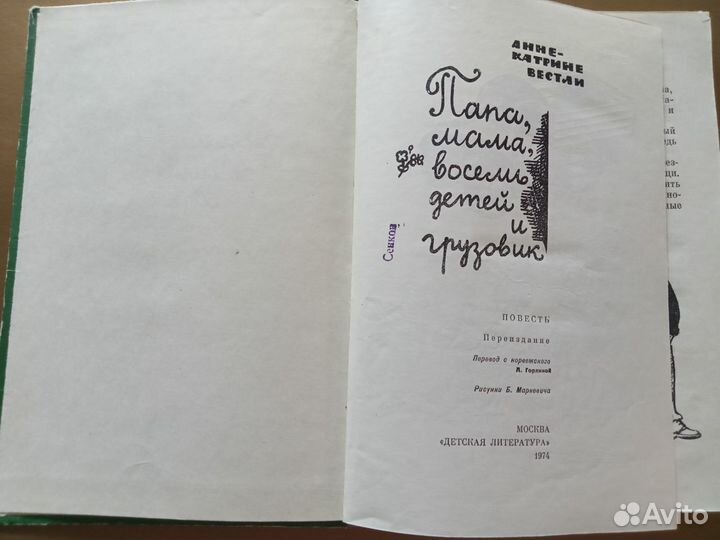 АННЕ-
КАТРИНЕ
ВЕСТЛИ
Папа,
мама,
восемь
детей
и
грузовик
Сенков
ПОВЕСТЬ
Переиздание
Перевод с норвежского
Л. Горлиной
Рисунки Б. Маркевича
МОСКВА
«ДЕТСКАЯ ЛИТЕРАТУРА»
1974
Avito